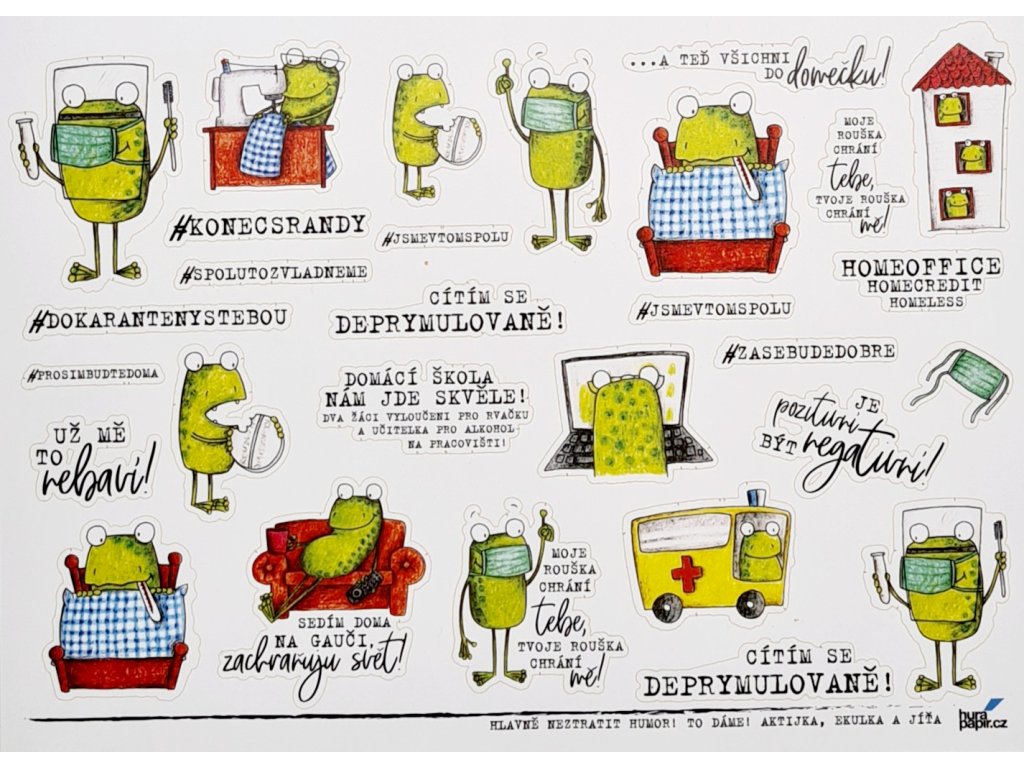 ...A TEĎ VŠICHNI
DO domečku!
MOJE
ROUŠKA
CHRÁNÍ
tebe,
TVOJE ROUŠKA
CHRÁNÍ
mě!
#KONECSRANDY
#JSMEVTOMSPOLU
#SPOLUTOZVLADNEME
HOMEOFFICE
HOMECREDIT
HOMELESS
#DOKARANTENYSTEBOU
CÍTÍM SE
DEPRYMULOVANĚ!
#JSMEVTOMSPOLU
#PROSIMBUDTEDOMA
#ZASEBUDEDOBRE
DOMÁCÍ ŠKOLA
NÁM JDE SKVĚLE!
DVA ŽÁCI VYLOUČENI PRO RVAČKU
A UČITELKA PRO ALKOHOL
NA PRACOVIŠTI!
JE
pozitivní
BÝT negativní!
UŽ MĚ
TO nebaví!
SEDÍM DOMA
NA GAUČI,
zachraňuju svět!
MOJE
ROUŠKA
CHRÁNÍ
tebe,
TVOJE ROUŠKA
CHRÁNÍ
mě!
CÍTÍM SE
DEPRYMULOVANĚ!
HLAVNĚ NEZTRATIT HUMOR! TO DÁME! AKTIJKA, EKULKA A JÍŤA
hura
papir.cz